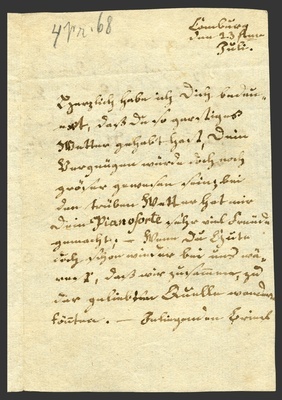 4 Pr. 68
Lömburg
den 23ten
Juli.
Herzlich habe ich Dich bedau-
ert, daß du so garstiges
Wetter gehabt hast, Dein
Vergnügen würde doch noch
größer gewesen sein; bei
dem trüben Wetter hat mir
Dein Pianoforte sehr viel Freude
gemacht. — Wenn Du Gute
doch schon wieder bei uns wä-
rest, daß wir zusammen zu
der geliebten Quelle wandern
könnten. — Inliegenden